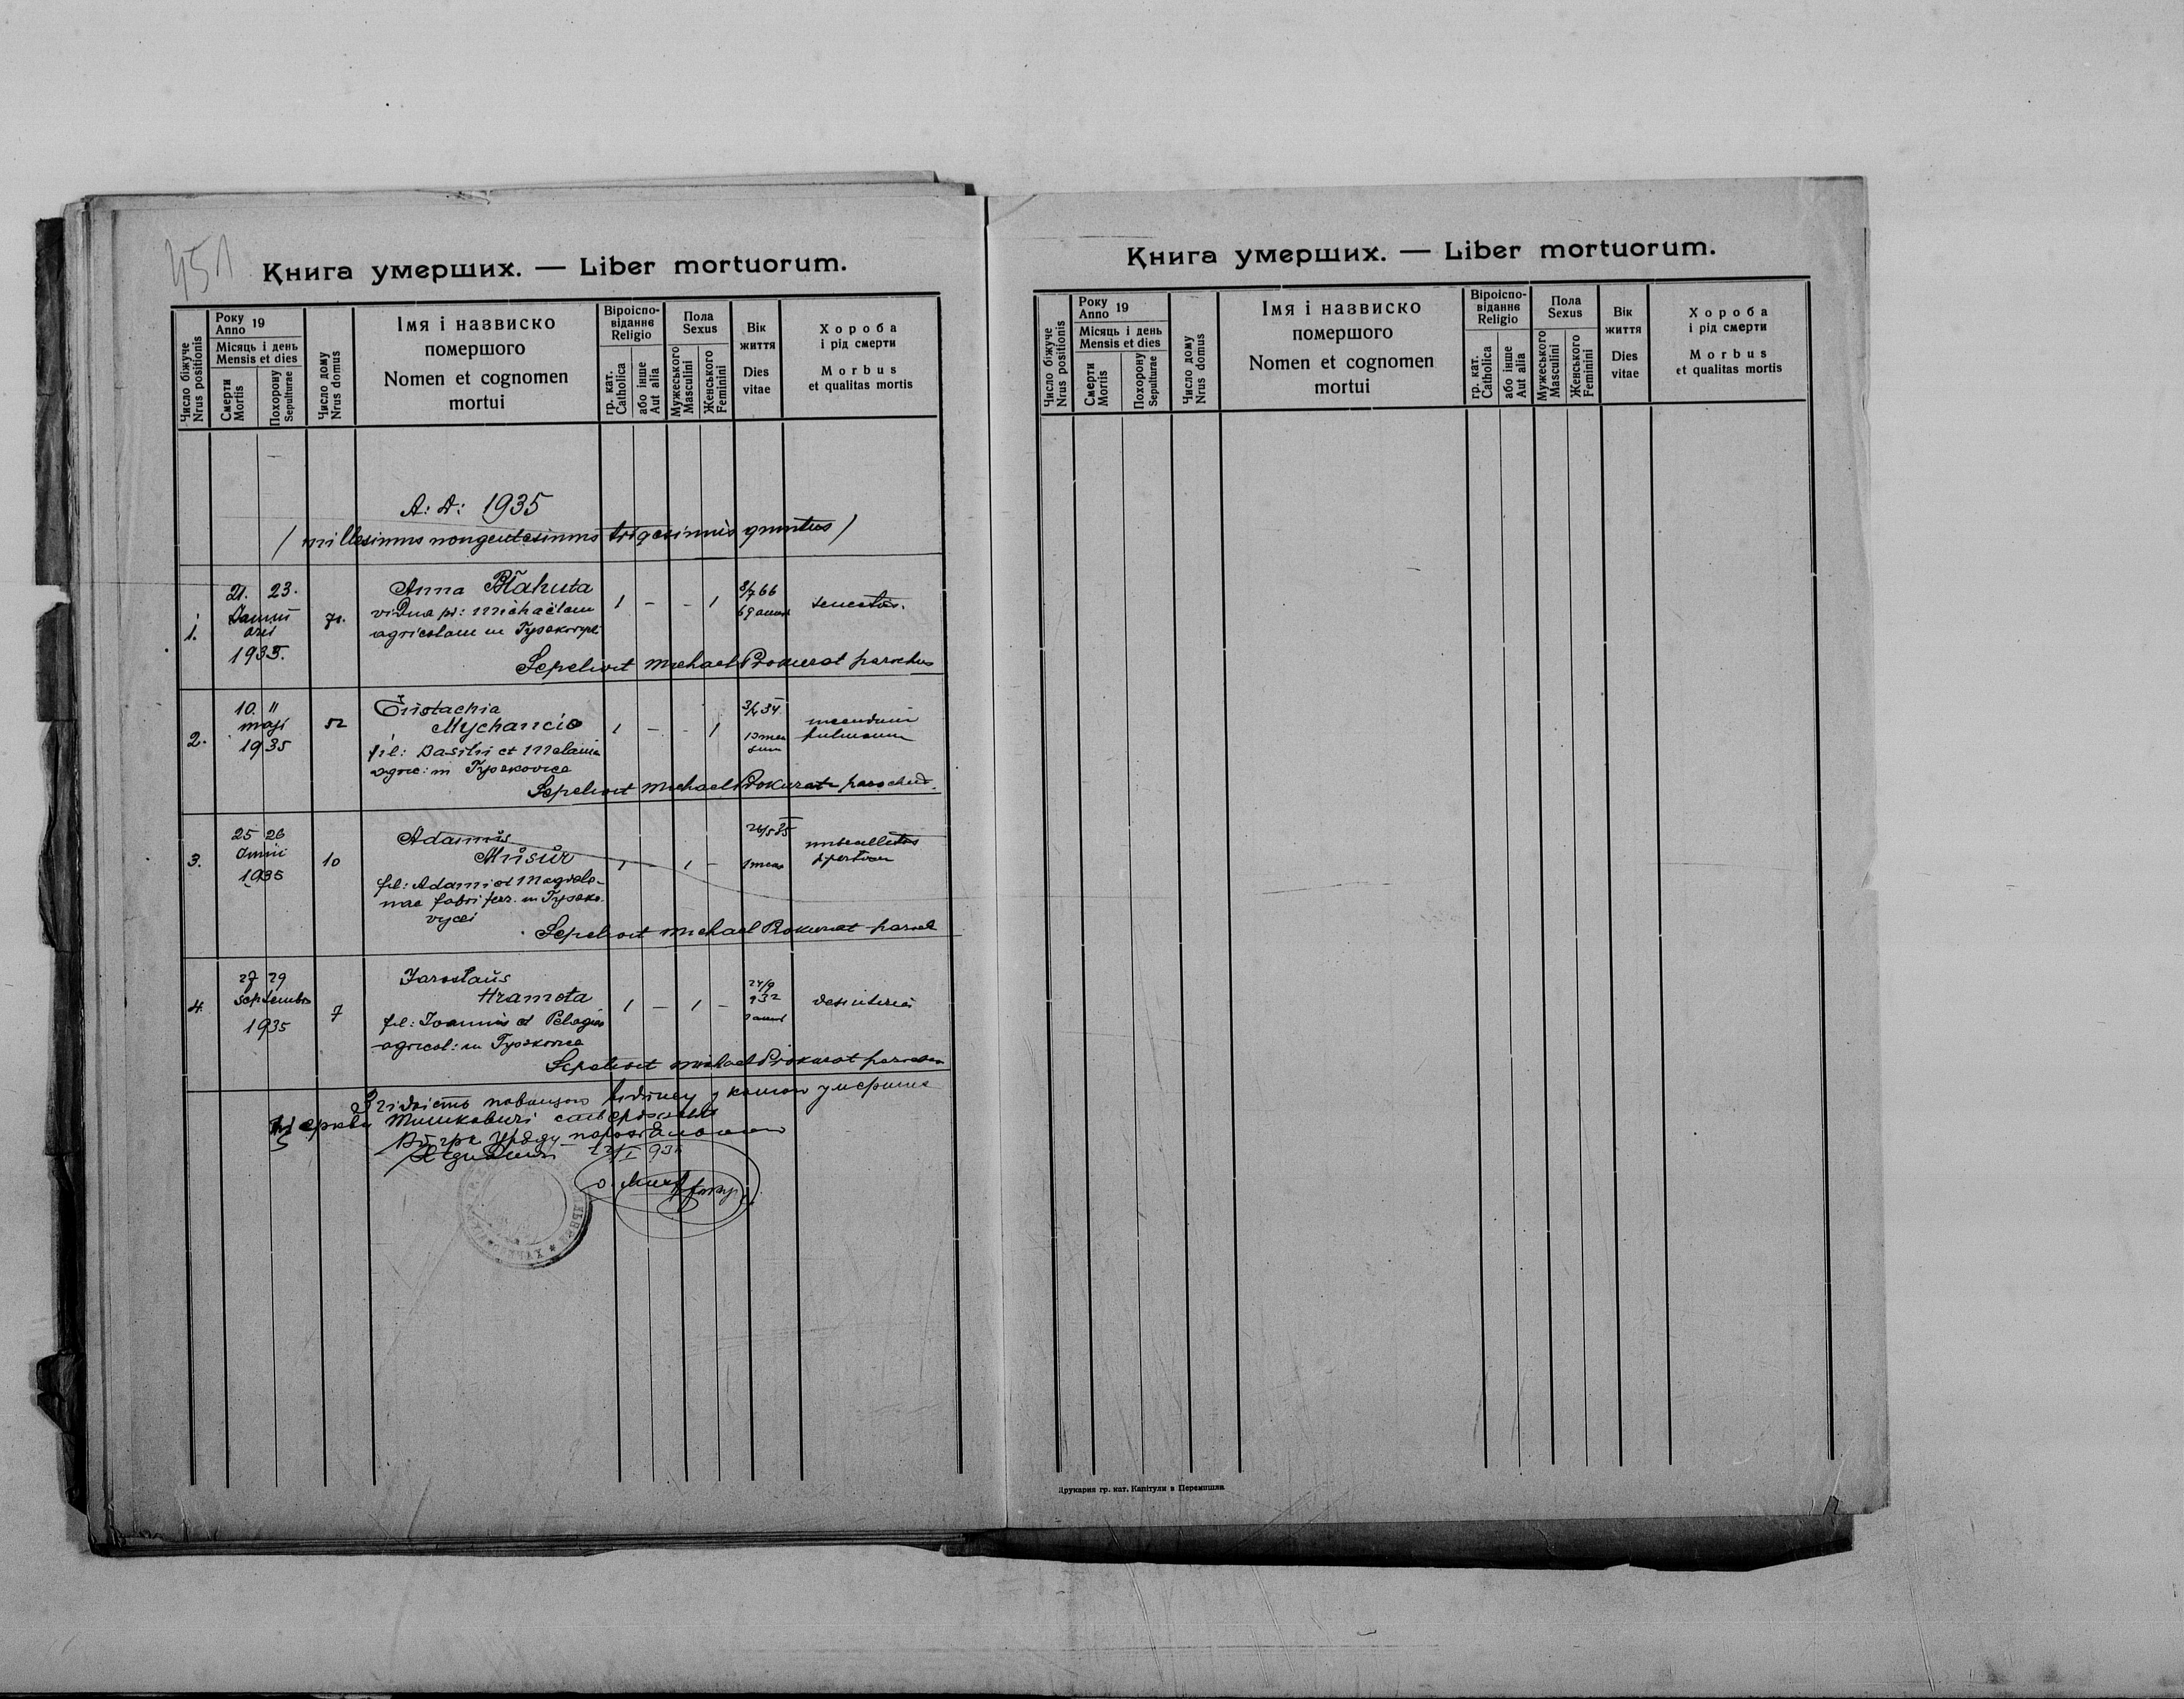 451
Книга умерших. — Liber mortuorum.
Число біжуче
Nrus positionis
Року
Anno 19
Місяць і день
Mensis et dies
Смерти
Mortis
Похорону
Sepulturae
Число дому
Nrus domus
Імя і назвиско
помершого
Nomen et cognomen
mortui
Віроіспо-
віданнє
Religio
гр. кат.
Catholica
або інше
Aut alia
Пола
Sexus
Мужеського
Masculini
Женського
Feminini
Вік
життя
Dies
vitae
Хороба
і рід смерти
Morbus
et qualitas mortis
A: D: 1935
/ millesimus nongentesimus trigesimus quintus /
1.
21. 23.
Januarii
1935.
Anna Błahuta
vidua p: Michaelem
agricolam in
1 - - 1
8/7 66
69 annor
senectus.
Sepelivit Michael Prokurat parochus
2.
10. 11
maji
1935
52
Eustachia
Mychancio
fil: Basilii et Melania
agric: in Tyszkovice
1 - - 1
Sepelivit Michael Prokurat parochus.
3.
25 26
Junii
1935
10
Adamus
Misur
fil: Adami et Magdale-
nae fabri ferr. in Tyszko-
vyci
1 - 1 -
1 mens
Sepelivit Michael Prokurat paroch
4.
27 29
Septembris
1935
7
Jarosłaus
Hramota
fil: Joannis et Pelagia
agricol: in Tyszkovice
1 - 1 -
24/9
932
3 annor
desinteria
Sepelivit Michael Prokurat parochus
Згідність повищого з книгою умерших
церкви Тишковичі
Книга умерших. — Liber mortuorum.
Число біжуче
Nrus positionis
Року
Anno 19
Місяць і день
Mensis et dies
Смерти
Mortis
Похорону
Sepulturae
Число дому
Nrus domus
Імя і назвиско
помершого
Nomen et cognomen
mortui
Віроіспо-
віданнє
Religio
гр. кат.
Catholica
або інше
Aut alia
Пола
Sexus
Мужеського
Masculini
Женського
Feminini
Вік
життя
Dies
vitae
Хороба
і рід смерти
Morbus
et qualitas mortis
Друкарня гр. кат. Капітули в Перемишли